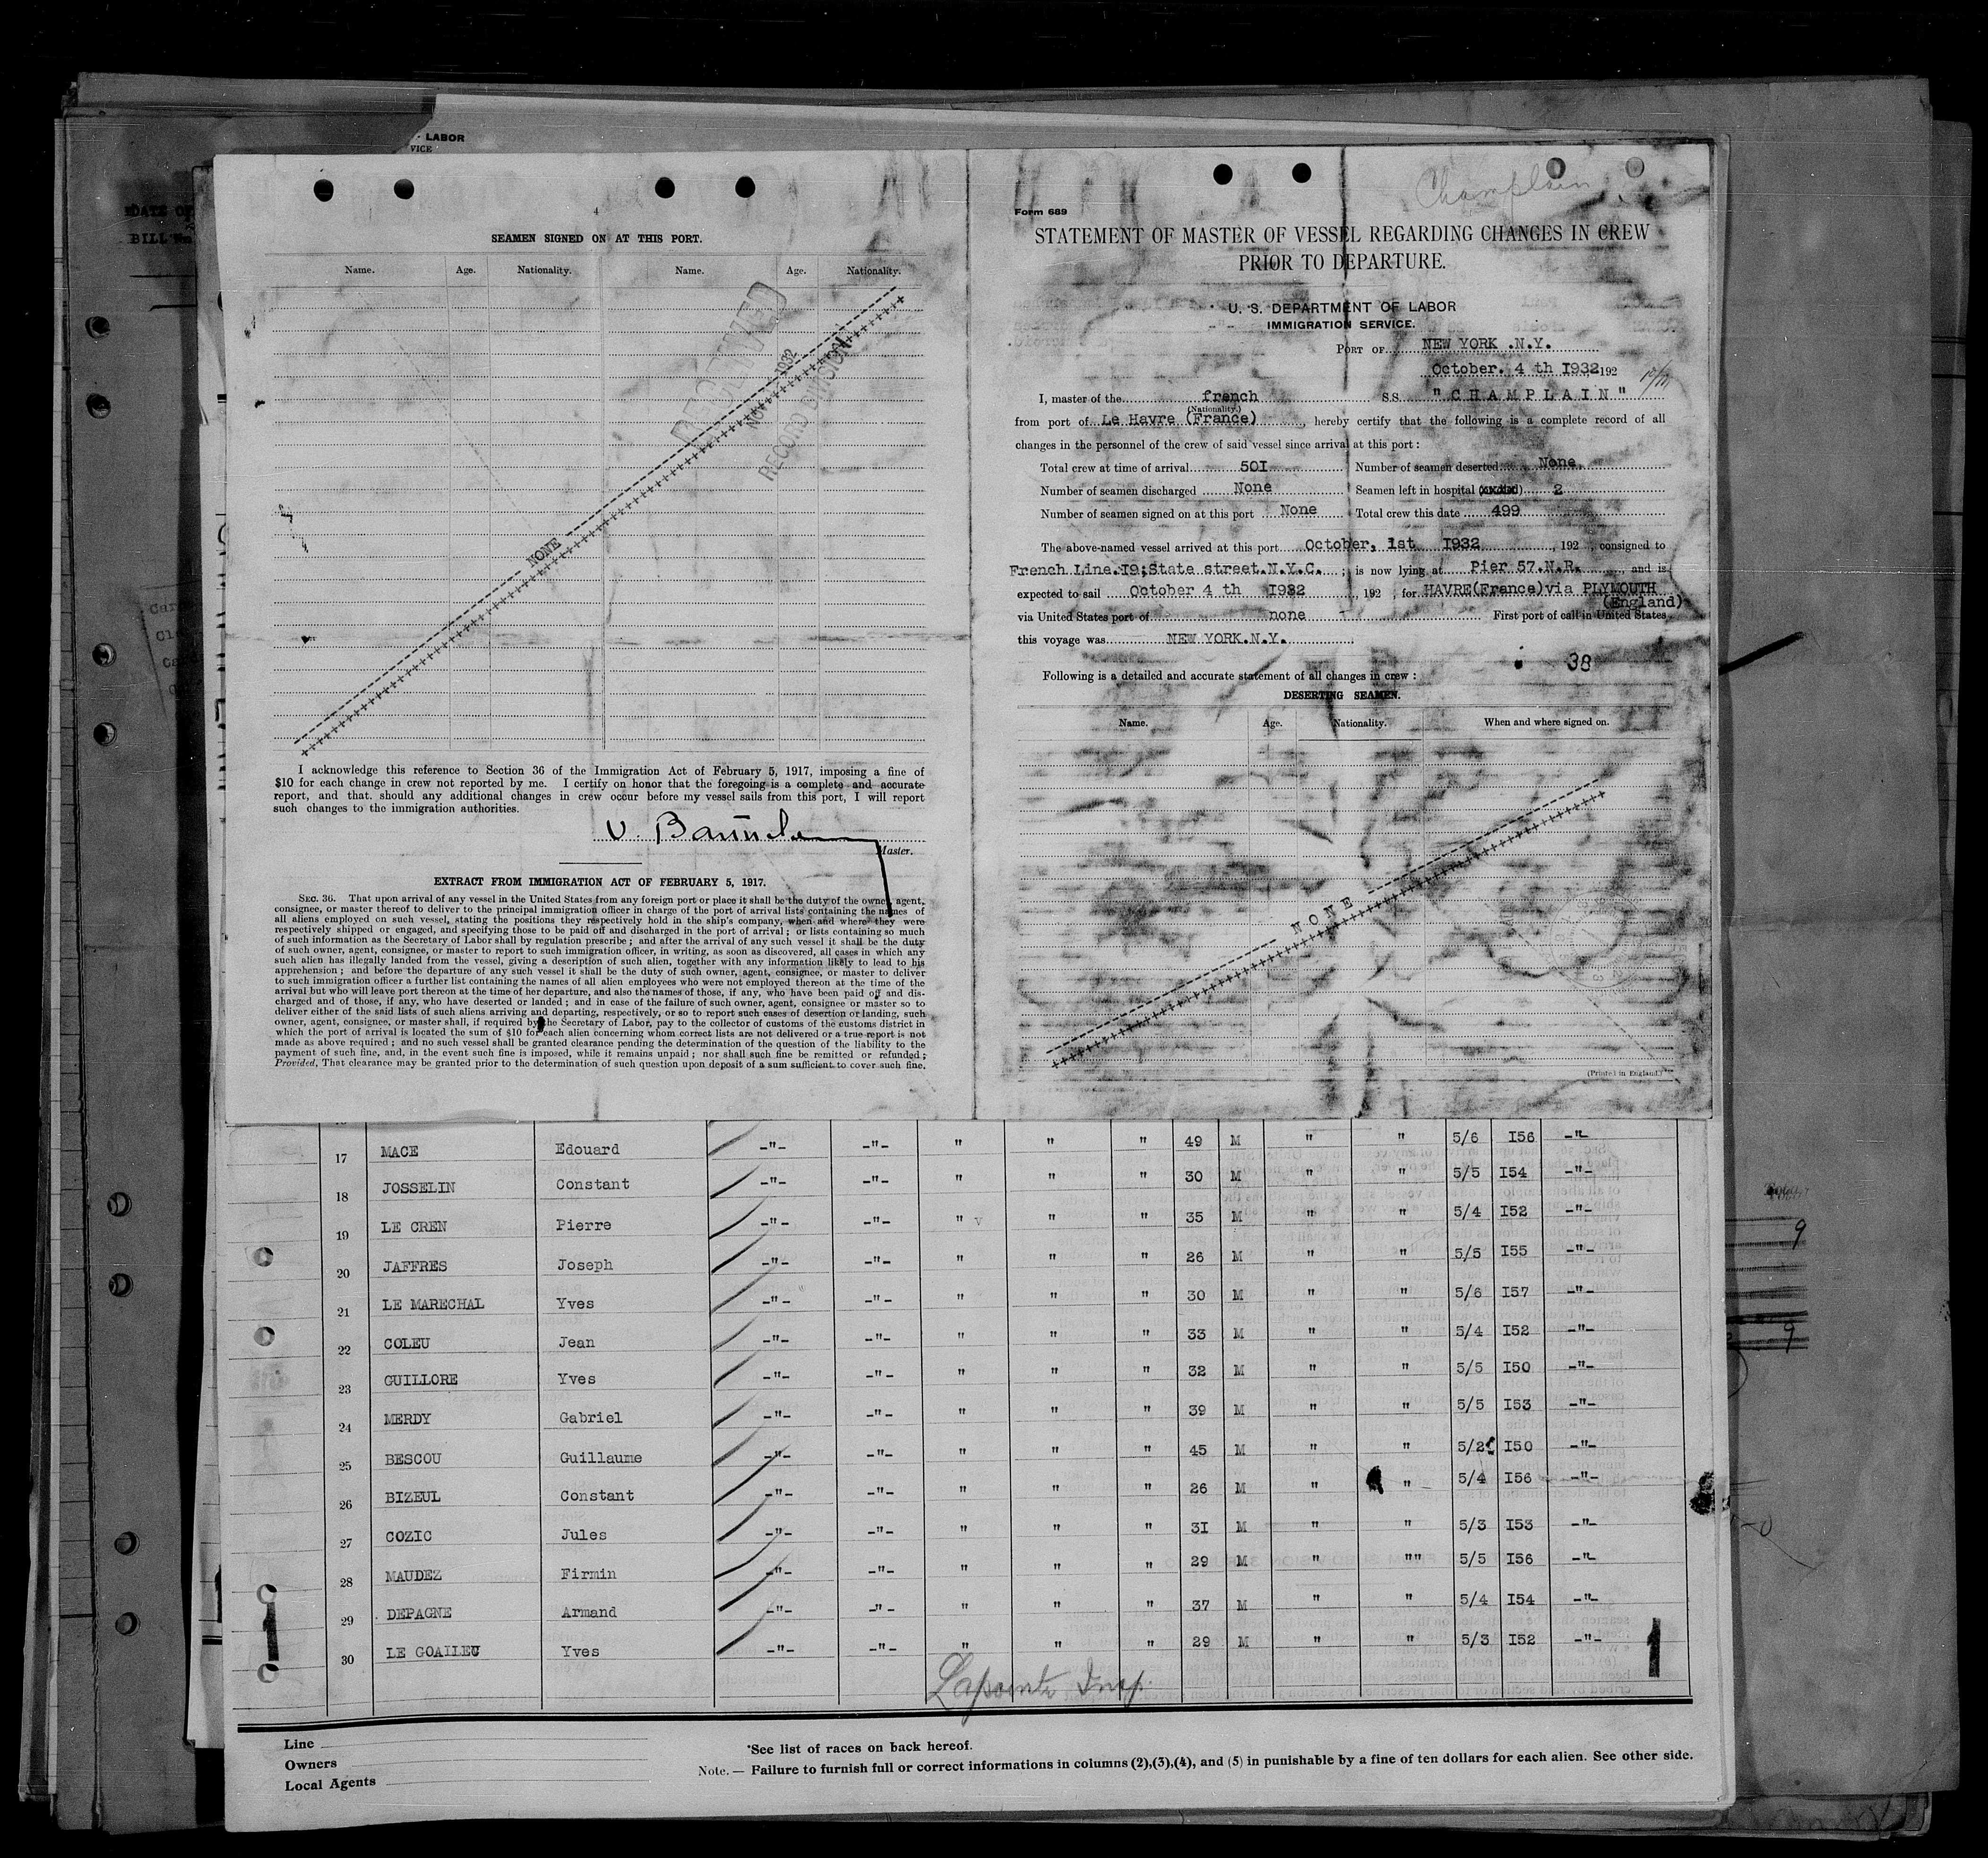 LABOR
VICE
DATE OF
BILL No
4
SEAMEN SIGNED ON AT THIS PORT.
Name. Age. Nationality. Name. Age. Nationality.
RECEIVED
NOV 1932
RECORD DIVISION
NONE
I acknowledge this reference to Section 36 of the Immigration Act of February 5, 1917, imposing a fine of
$10 for each change in crew not reported by me. I certify on honor that the foregoing is a complete and accurate
report, and that. should any additional changes in crew occur before my vessel sails from this port, I will report
such changes to the immigration authorities.
Master.
EXTRACT FROM IMMIGRATION ACT OF FEBRUARY 5, 1917.
SEC. 36. That upon arrival of any vessel in the United States from any foreign port or place it shall be the duty of the owner, agent,
consignee, or master thereof to deliver to the principal immigration officer in charge of the port of arrival lists containing the names of
all aliens employed on such vessel, stating the positions they respectively hold in the ship's company, when and where they were
respectively shipped or engaged, and specifying those to be paid off and discharged in the port of arrival; or lists containing so much
of such information as the Secretary of Labor shall by regulation prescribe; and after the arrival of any such vessel it shall be the duty
of such owner, agent, consignee, or master to report to such immigration officer, in writing, as soon as discovered, all cases in which any
such alien has illegally landed from the vessel, giving a description of such alien, together with any information likely to lead to his
apprehension; and before the departure of any such vessel it shall be the duty of such owner, agent, consignee, or master to deliver
to such immigration officer a further list containing the names of all alien employees who were not employed thereon at the time of the
arrival but who will leave port thereon at the time of her departure, and also the names of those, if any, who have been paid off and dis-
charged and of those, if any, who have deserted or landed; and in case of the failure of such owner, agent, consignee or master so to
deliver either of the said lists of such aliens arriving and departing, respectively, or so to report such cases of desertion or landing, such
owner, agent, consignee, or master shall, if required by the Secretary of Labor, pay to the collector of customs of the customs district in
which the port of arrival is located the sum of $10 for each alien concerning whom correct lists are not delivered or a true report is not
made as above required; and no such vessel shall be granted clearance pending the determination of the question of the liability to the
payment of such fine, and, in the event such fine is imposed, while it remains unpaid; nor shall such fine be remitted or refunded;
Provided, That clearance may be granted prior to the determination of such question upon deposit of a sum sufficient to cover such fine.
Champlain
Form 689
STATEMENT OF MASTER OF VESSEL REGARDING CHANGES IN CREW
PRIOR TO DEPARTURE.
U. S. DEPARTMENT OF LABOR
IMMIGRATION SERVICE.
PORT OF NEW YORK .N.Y.
October. 4 th I932 192
I, master of the french S.S. "C H A M P L A I N"
(Nationality.)
from port of Le Havre (France), hereby certify that the following is a complete record of all
changes in the personnel of the crew of said vessel since arrival at this port:
Total crew at time of arrival 50I Number of seamen deserted None
Number of seamen discharged None Seamen left in hospital 2
Number of seamen signed on at this port None Total crew this date 499
The above-named vessel arrived at this port October, 1st I932, 192 , consigned to
French Line.I9;State street.N.Y.C. ; is now lying at Pier 57.N.R., and is
expected to sail October 4 th I932, 192 , for HAVRE(France)via PLYMOUTH
(England)
via United States port of none First port of call in United States
this voyage was NEW YORK.N.Y.
38
Following is a detailed and accurate statement of all changes in crew:
DESERTING SEAMEN.
Name. Age. Nationality. When and where signed on.
N O N E
(Printed in England.)
17 MACE Edouard -"- -"- " " " 49 M " " 5/6 I56 -"-
18 JOSSELIN Constant -"- -"- " " " 30 M " " 5/5 I54 -"-
19 LE CREN Pierre -"- -"- " v " " 35 M " " 5/4 I52 -"-
20 JAFFRES Joseph -"- -"- " " " 26 M " " 5/5 I55 -"-
21 LE MARECHAL Yves -"- -"- " " " 30 M " " 5/6 I57 -"-
22 COLEU Jean -"- -"- " " " 33 M " " 5/4 I52 -"-
23 GUILLORE Yves -"- -"- " " " 32 M " " 5/5 I50 -"-
24 MERDY Gabriel -"- -"- " " " 39 M " " 5/5 I53 -"-
25 BESCOU Guillaume -"- -"- " " " 45 M " " 5/2 I50 -"-
26 BIZEUL Constant -"- -"- " " " 26 M " " 5/4 I56 -"-
27 COZIC Jules -"- -"- " " " 3I M " " 5/3 I53 -"-
28 MAUDEZ Firmin -"- -"- " " " 29 M " "" 5/5 I56 -"-
29 DEPAGNE Armand -"- -"- " " " 37 M " " 5/4 I54 -"-
30 LE GOAILEU Yves -"- -"- " " " 29 M " " 5/3 I52 -"-
1 1
Lapointe Insp.
Line
Owners
Local Agents
*See list of races on back hereof.
Note. — Failure to furnish full or correct informations in columns (2),(3),(4), and (5) in punishable by a fine of ten dollars for each alien. See other side.
9
9